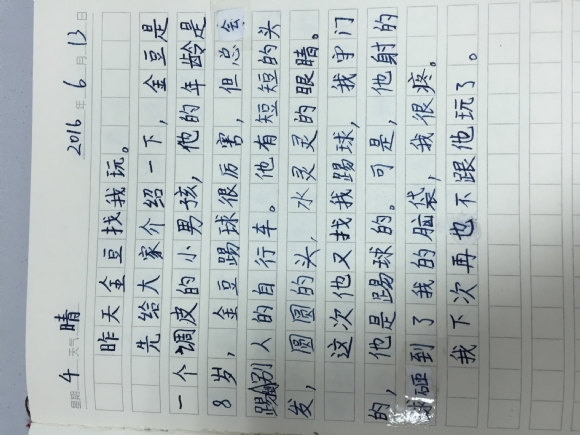 星期 4 天气 晴 2016 年 6 月 13 日
昨天金豆找我玩。
先给大家介绍一下，金豆是
一个调皮的小男孩，他的年龄是
8岁，金豆踢球很厉害，但总会
踢别人的自行车。他有短短的头
发，圆圆的头，水灵灵的眼睛。
这次他又找我踢球，我守门
的，他是踢球的。可是，他射的
球砸到了我的脑袋，我很疼。
我下次再也不跟他玩了。